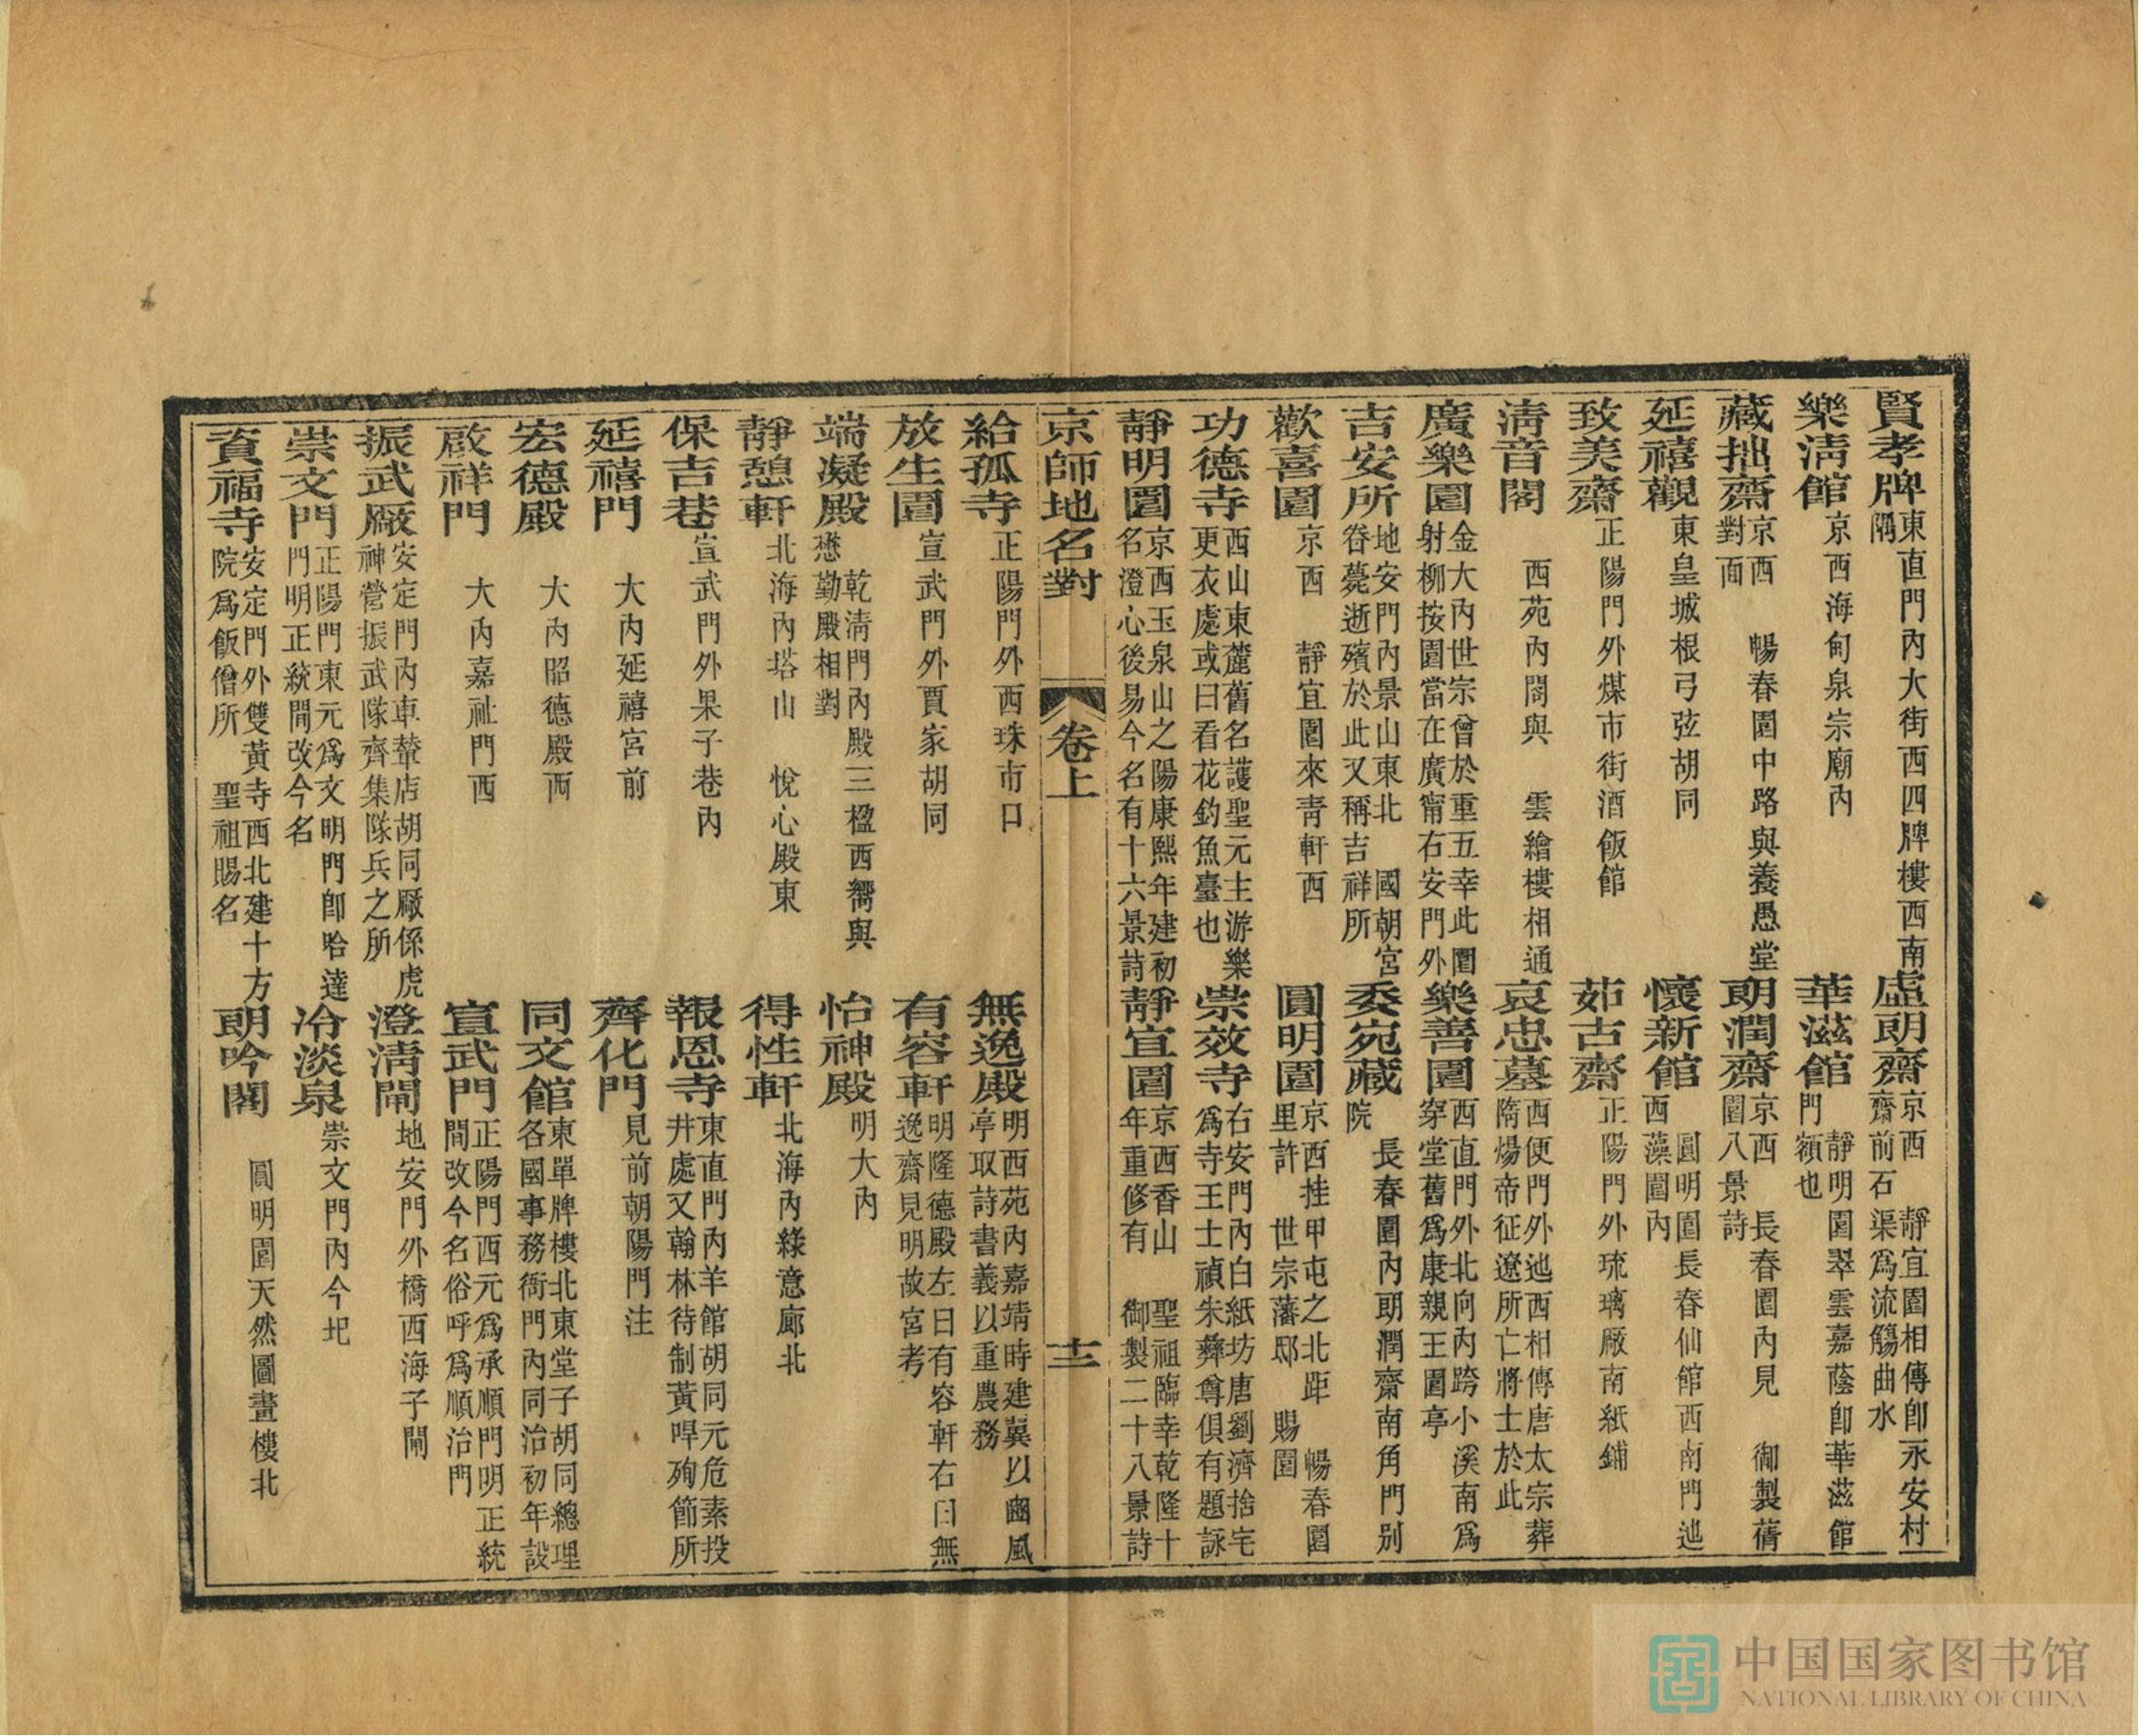 賢孝牌東直門內大街西四牌樓西南隅 虛朗齋京西 靜宜園相傳卽永安村齋前石渠爲流觴曲水
樂淸館京西海甸泉宗廟內 華滋館 靜明園翠雲嘉蔭卽華滋館門額也
藏拙齋京西 暢春園中路與養愚堂對面 朗潤齋京西 長春園內見 御製蒨園八景詩
延禧觀東皇城根弓弦胡同 懷新館 圓明園長春仙館西南門迆西藻園內
致美齋正陽門外煤市街酒飯館 茹古齋正陽門外琉璃厰南紙鋪
淸音閣 西苑內閣與 雲繪樓相通 哀忠墓西便門外迆西相傳唐太宗葬隋煬帝征遼所亡將士於此
廣樂園金大內世宗曾於重五幸此園射柳按園當在廣甯右安門外 樂善園西直門外北向內跨小溪南爲穿堂舊爲康親王園亭
吉安所地安門內景山東北 國朝宮眷薨逝殯於此又稱吉祥所 委宛藏 長春園內朗潤齋南角門別院
歡喜園京西 靜宜園來靑軒西 圓明園京西挂甲屯之北距 暢春園里許 世宗藩邸 賜園
功德寺西山東麓舊名護聖元主游樂更衣處或曰看花釣魚臺也 崇效寺右安門內白紙坊唐劉濟捨宅爲寺王士禎朱彝尊俱有題詠
靜明園京西玉泉山之陽康熙年建初名澄心後易今名有十六景詩 靜宜園京西香山 聖祖臨幸乾隆十年重修有 御製二十八景詩
京師地名對 卷上 十二
給孤寺正陽門外西珠市口 無逸殿明西苑內嘉靖時建冀以豳風亭取詩書義以重農務
放生園宣武門外賈家胡同 有容軒明隆德殿左曰有容軒右曰無逸齋見明故宮考
端凝殿 乾淸門內殿三楹西嚮與懋勤殿相對 怡神殿明大內
靜憩軒北海內塔山 悅心殿東 得性軒北海內綠意廊北
保吉巷宣武門外果子巷內 報恩寺東直門內羊館胡同元危素投井處又翰林待制黃哻殉節所
延禧門 大內延禧宮前 齊化門見前朝陽門注
宏德殿 大內昭德殿西 同文館東單牌樓北東堂子胡同總理各國事務衙門內同治初年設
啟祥門 大內嘉祉門西 宣武門正陽門西元爲承順門明正統間改今名俗呼爲順治門
振武厰安定門內車輦店胡同厰係虎神營振武隊齊集隊兵之所 澄淸閘地安門外橋西海子閘
崇文門正陽門東元爲文明門卽哈達門明正統間改今名 冷淡泉崇文門內今圯
資福寺安定門外雙黃寺西北建十方院爲飯僧所 聖祖賜名 朗吟閣 圓明園天然圖畫樓北
中国国家图书馆
NATIONAL LIBRARY OF CHINA